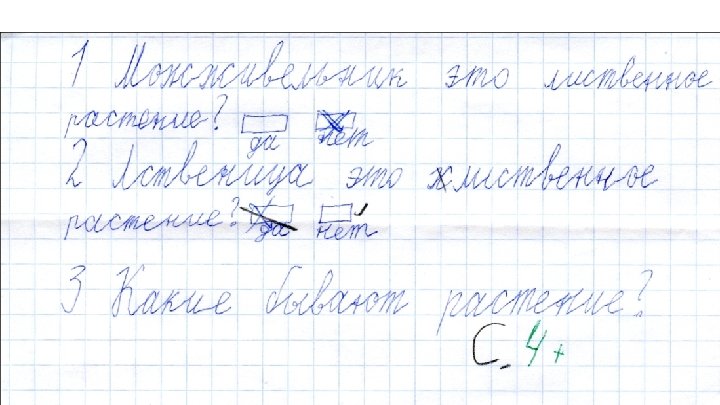 1 Можживельник это лиственное
растение?
да нет
2 Лственица это лиственное
растение? да нет
3 Какие бывают растение?
С. 4+